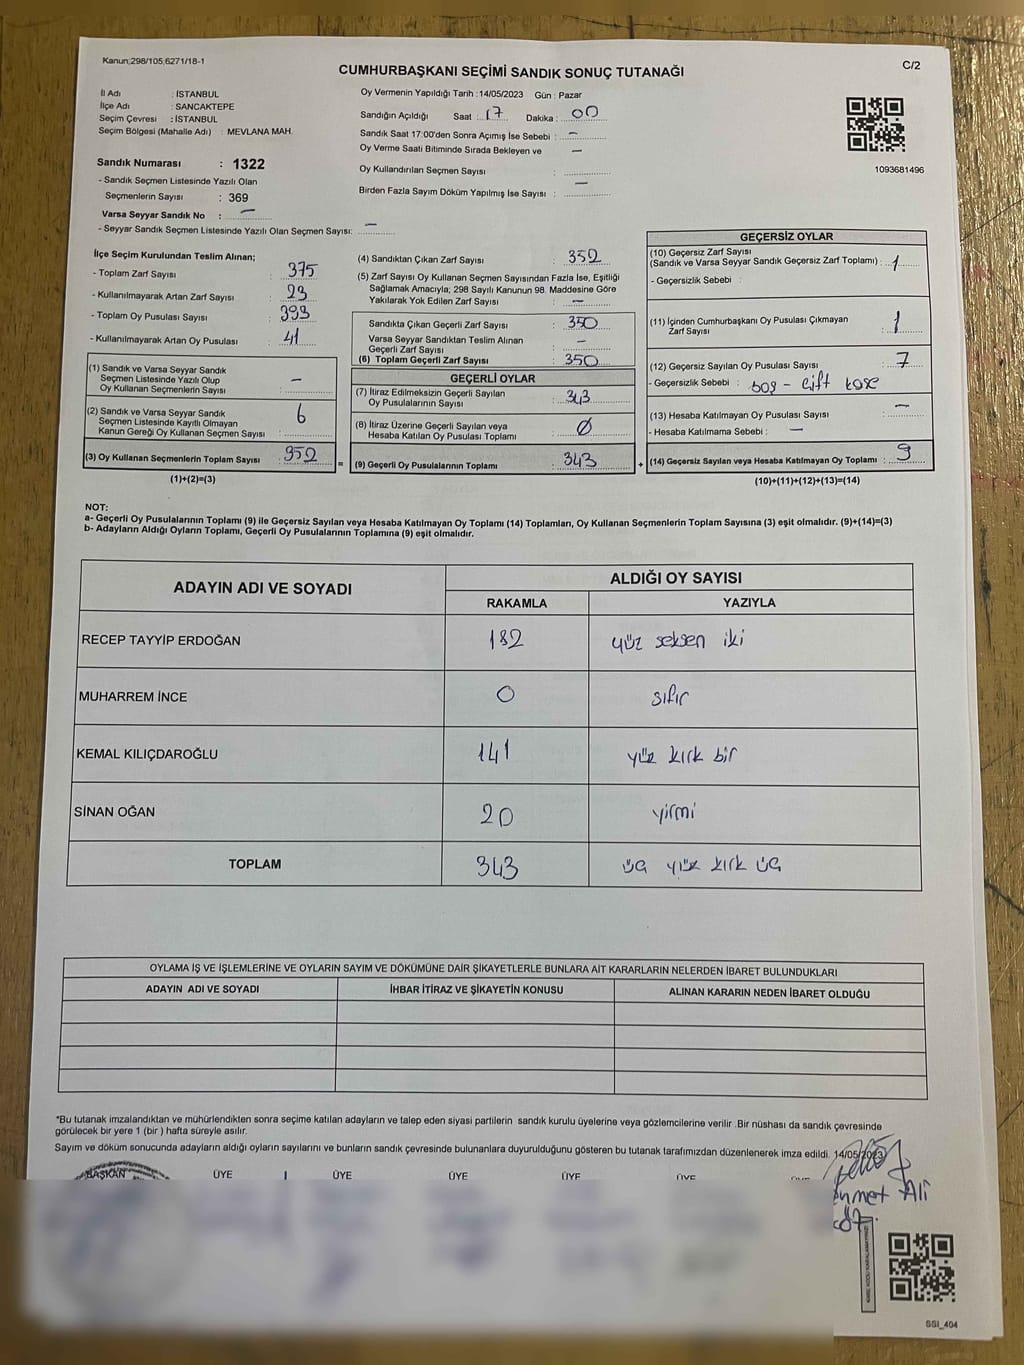 Kanun;298/105,6271/18-1
C/2
CUMHURBAŞKANI SEÇİMİ SANDIK SONUÇ TUTANAĞI
İl Adı : İSTANBUL
İlçe Adı : SANCAKTEPE
Seçim Çevresi : İSTANBUL
Seçim Bölgesi (Mahalle Adı) : MEVLANA MAH.
Sandık Numarası : 1322
- Sandık Seçmen Listesinde Yazılı Olan
Seçmenlerin Sayısı : 369
Varsa Seyyar Sandık No : —
- Seyyar Sandık Seçmen Listesinde Yazılı Olan Seçmen Sayısı: —
Oy Vermenin Yapıldığı Tarih :14/05/2023 Gün : Pazar
Sandığın Açıldığı Saat : 17 Dakika : 00
Sandık Saat 17:00'den Sonra Açımış İse Sebebi : —
Oy Verme Saati Bitiminde Sırada Bekleyen ve —
Oy Kullandırılan Seçmen Sayısı :
Birden Fazla Sayım Döküm Yapılmış İse Sayısı : —
1093681496
İlçe Seçim Kurulundan Teslim Alınan;
- Toplam Zarf Sayısı : 375
- Kullanılmayarak Artan Zarf Sayısı : 23
- Toplam Oy Pusulası Sayısı : 393
- Kullanılmayarak Artan Oy Pusulası : 41
(1) Sandık ve Varsa Seyyar Sandık
Seçmen Listesinde Yazılı Olup
Oy Kullanan Seçmenlerin Sayısı : —
(2) Sandık ve Varsa Seyyar Sandık
Seçmen Listesinde Kayıtlı Olmayan
Kanun Gereği Oy Kullanan Seçmen Sayısı : 6
(3) Oy Kullanan Seçmenlerin Toplam Sayısı : 352
(1)+(2)=(3)
(4) Sandıktan Çıkan Zarf Sayısı : 352
(5) Zarf Sayısı Oy Kullanan Seçmen Sayısından Fazla İse, Eşitliği
Sağlamak Amacıyla; 298 Sayılı Kanunun 98. Maddesine Göre
Yakılarak Yok Edilen Zarf Sayısı : —
Sandıkta Çıkan Geçerli Zarf Sayısı : 350
Varsa Seyyar Sandıktan Teslim Alınan
Geçerli Zarf Sayısı : —
(6) Toplam Geçerli Zarf Sayısı : 350
GEÇERLİ OYLAR
(7) İtiraz Edilmeksizin Geçerli Sayılan
Oy Pusulalarının Sayısı : 343
(8) İtiraz Üzerine Geçerli Sayılan veya
Hesaba Katılan Oy Pusulası Toplamı : Ø
= (9) Geçerli Oy Pusulalarının Toplamı : 343
GEÇERSİZ OYLAR
(10) Geçersiz Zarf Sayısı
(Sandık ve Varsa Seyyar Sandık Geçersiz Zarf Toplamı) : 1
- Geçersizlik Sebebi :
(11) İçinden Cumhurbaşkanı Oy Pusulası Çıkmayan
Zarf Sayısı : 1
(12) Geçersiz Sayılan Oy Pusulası Sayısı : 7
- Geçersizlik Sebebi : boş - çift kaşe
(13) Hesaba Katılmayan Oy Pusulası Sayısı : —
- Hesaba Katılmama Sebebi : —
+ (14) Geçersiz Sayılan veya Hesaba Katılmayan Oy Toplamı : 9
(10)+(11)+(12)+(13)=(14)
NOT:
a- Geçerli Oy Pusulalarının Toplamı (9) ile Geçersiz Sayılan veya Hesaba Katılmayan Oy Toplamı (14) Toplamları, Oy Kullanan Seçmenlerin Toplam Sayısına (3) eşit olmalıdır. (9)+(14)=(3)
b- Adayların Aldığı Oyların Toplamı, Geçerli Oy Pusulalarının Toplamına (9) eşit olmalıdır.
ADAYIN ADI VE SOYADI ALDIĞI OY SAYISI
RAKAMLA YAZIYLA
RECEP TAYYİP ERDOĞAN 182 yüz seksen iki
MUHARREM İNCE 0 sıfır
KEMAL KILIÇDAROĞLU 141 yüz kırk bir
SİNAN OĞAN 20 yirmi
TOPLAM 343 üç yüz kırk üç
OYLAMA İŞ VE İŞLEMLERİNE VE OYLARIN SAYIM VE DÖKÜMÜNE DAİR ŞİKAYETLERLE BUNLARA AİT KARARLARIN NELERDEN İBARET BULUNDUKLARI
ADAYIN ADI VE SOYADI İHBAR İTİRAZ VE ŞİKAYETİN KONUSU ALINAN KARARIN NEDEN İBARET OLDUĞU
*Bu tutanak imzalandıktan ve mühürlendikten sonra seçime katılan adayların ve talep eden siyasi partilerin sandık kurulu üyelerine veya gözlemcilerine verilir .Bir nüshası da sandık çevresinde
görülecek bir yere 1 (bir ) hafta süreyle asılır.
Sayım ve döküm sonucunda adayların aldığı oyların sayılarını ve bunların sandık çevresinde bulunanlara duyurulduğunu gösteren bu tutanak tarafımızdan düzenlenerek imza edildi. 14/05/2023
BAŞKAN ÜYE ÜYE ÜYE ÜYE ÜYE
Ali
SSI_404